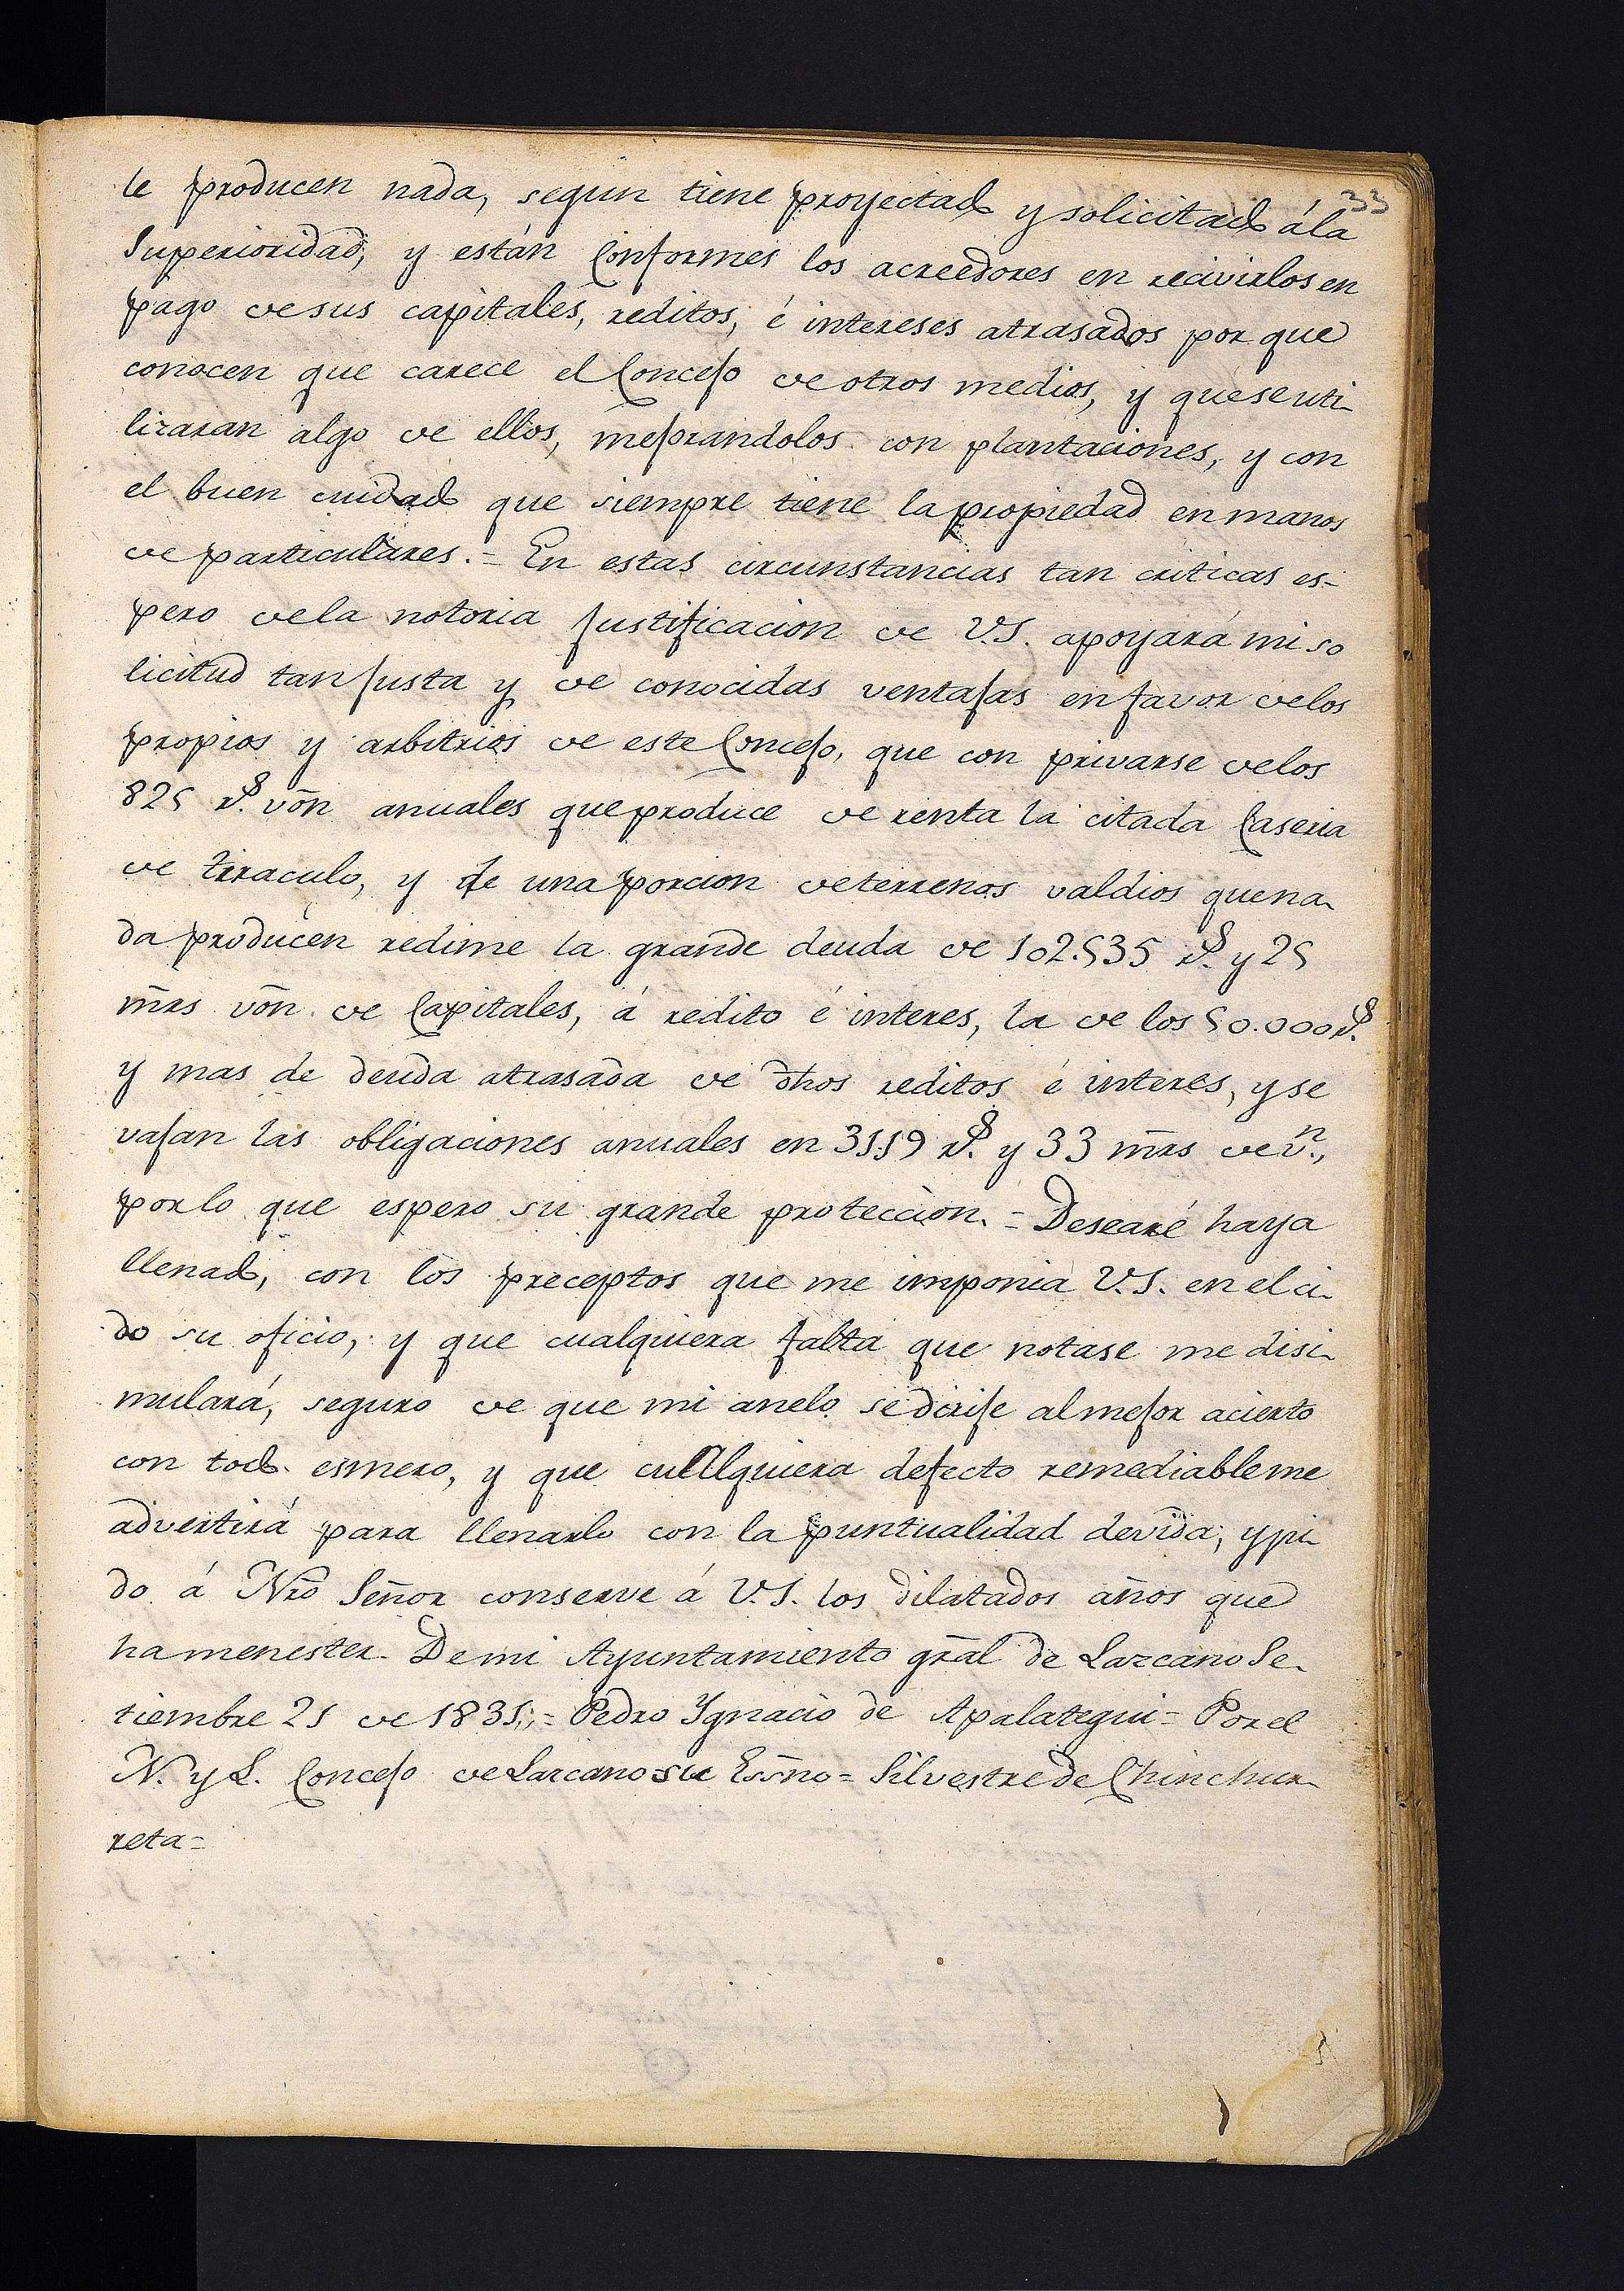 33
le producen nada, segun tiene proyectado y solicitado á la
Superioridad, y están Conformes los acreedores en recivirlos en
pago de sus capitales, reditos, é intereses atrasados por que
conocen que carece el Concejo de otros medios, y que se uti-
lizaran algo de ellos, mejorandolos con plantaciones, y con
el buen cuidado que siempre tiene la propiedad en manos
de particulares. = En estas circunstancias tan criticas es-
pero de la notoria justificacion de V.S. apoyará mi so
licitud tan justa y de conocidas ventajas en favor de los
propios y arbitrios de este Concejo, que con privarse de los
825 rs. von anuales que produce de renta la citada Caseria
de tiraculo, y de una porcion de terrenos valdios que na-
da producen redime la grande deuda de 102.535 rs. y 25
mrs von de Capitales, á redito é interes, la de los 50.000 rs.
y mas de deuda atrasada de dhos reditos é interes, y se
vajan las obligaciones anuales en 3119 rs. y 33 mrs de vn.,
por lo que espero su grande protección. = Desearé haya
llenado, con los preceptos que me imponia V.S. en el ci-
do su oficio, y que cualquiera falta que notase me disi-
mulará, seguro de que mi anelo se dirije al mejor acierto
con todo esmero, y que cualquiera defecto remediable me
advertirá para llenarlo con la puntualidad devida, y pi-
do á Nro Señor conserve á V.S. los dilatados años que
ha menester. De mi Ayuntamiento gral de Lazcano Se-
tiembre 21 de 1831, = Pedro Ygnacio de Apalategui = Por el
N. y L. Concejo de Lazcano su Essno = Silvestre de Chinchur-
reta =